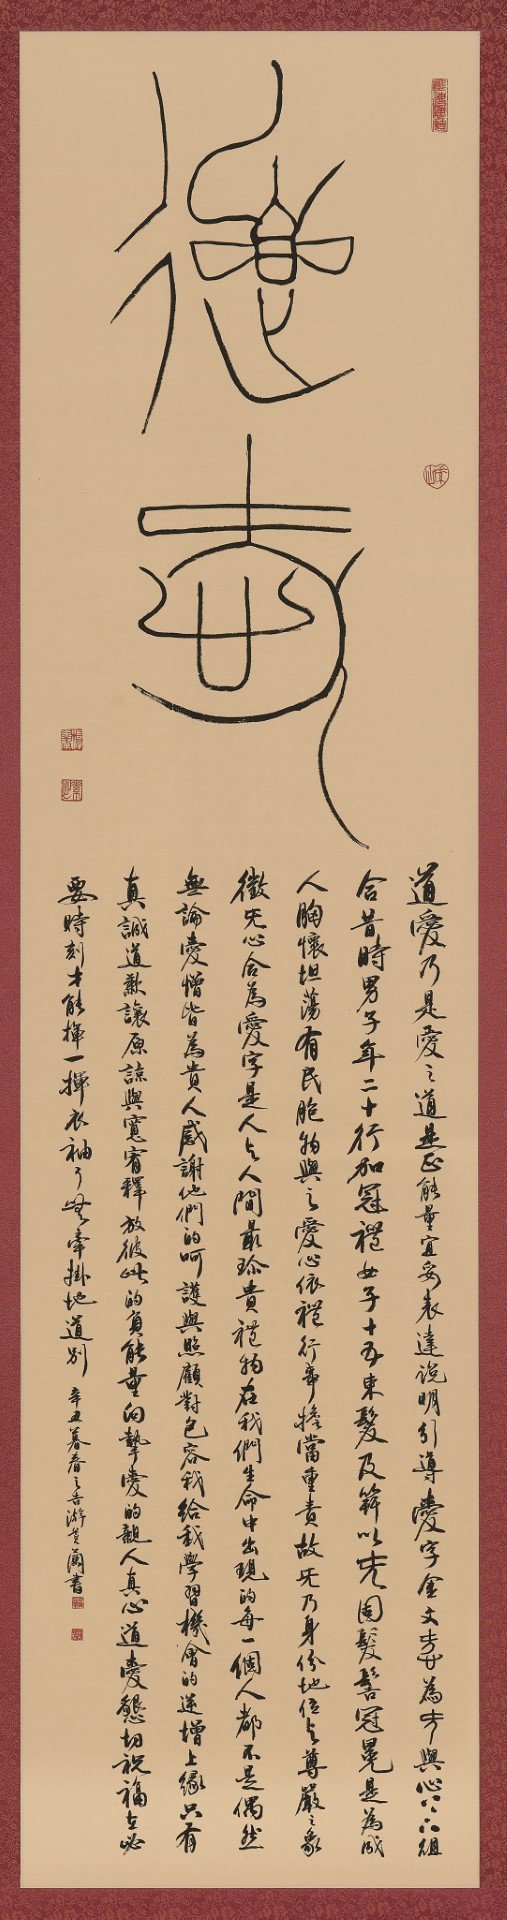 道愛乃是愛之道是正能量宜妥表達說明引導愛字金文
為 與心上下組
合昔時男子年二十行加冠禮女子十五束髮及笄以 固髮髻冠冕是為成
人胸懷坦蕩有民胞物與之愛心依禮行事擔當重責故 乃身份地位與尊嚴之象
徵 心合為愛字是人與人間最珍貴禮物在我們生命中出現的每一個人都不是偶然
無論愛憎皆為貴人感謝他們的呵護與照顧對包容我給我學習機會的逆增上緣只有
真誠道歉讓原諒與寬宥釋放彼此的負能量向摯愛的親人真心道愛懇切祝福在必
要時刻才能揮一揮衣袖了無牽掛地道別
辛丑暮春之吉游 蘭書